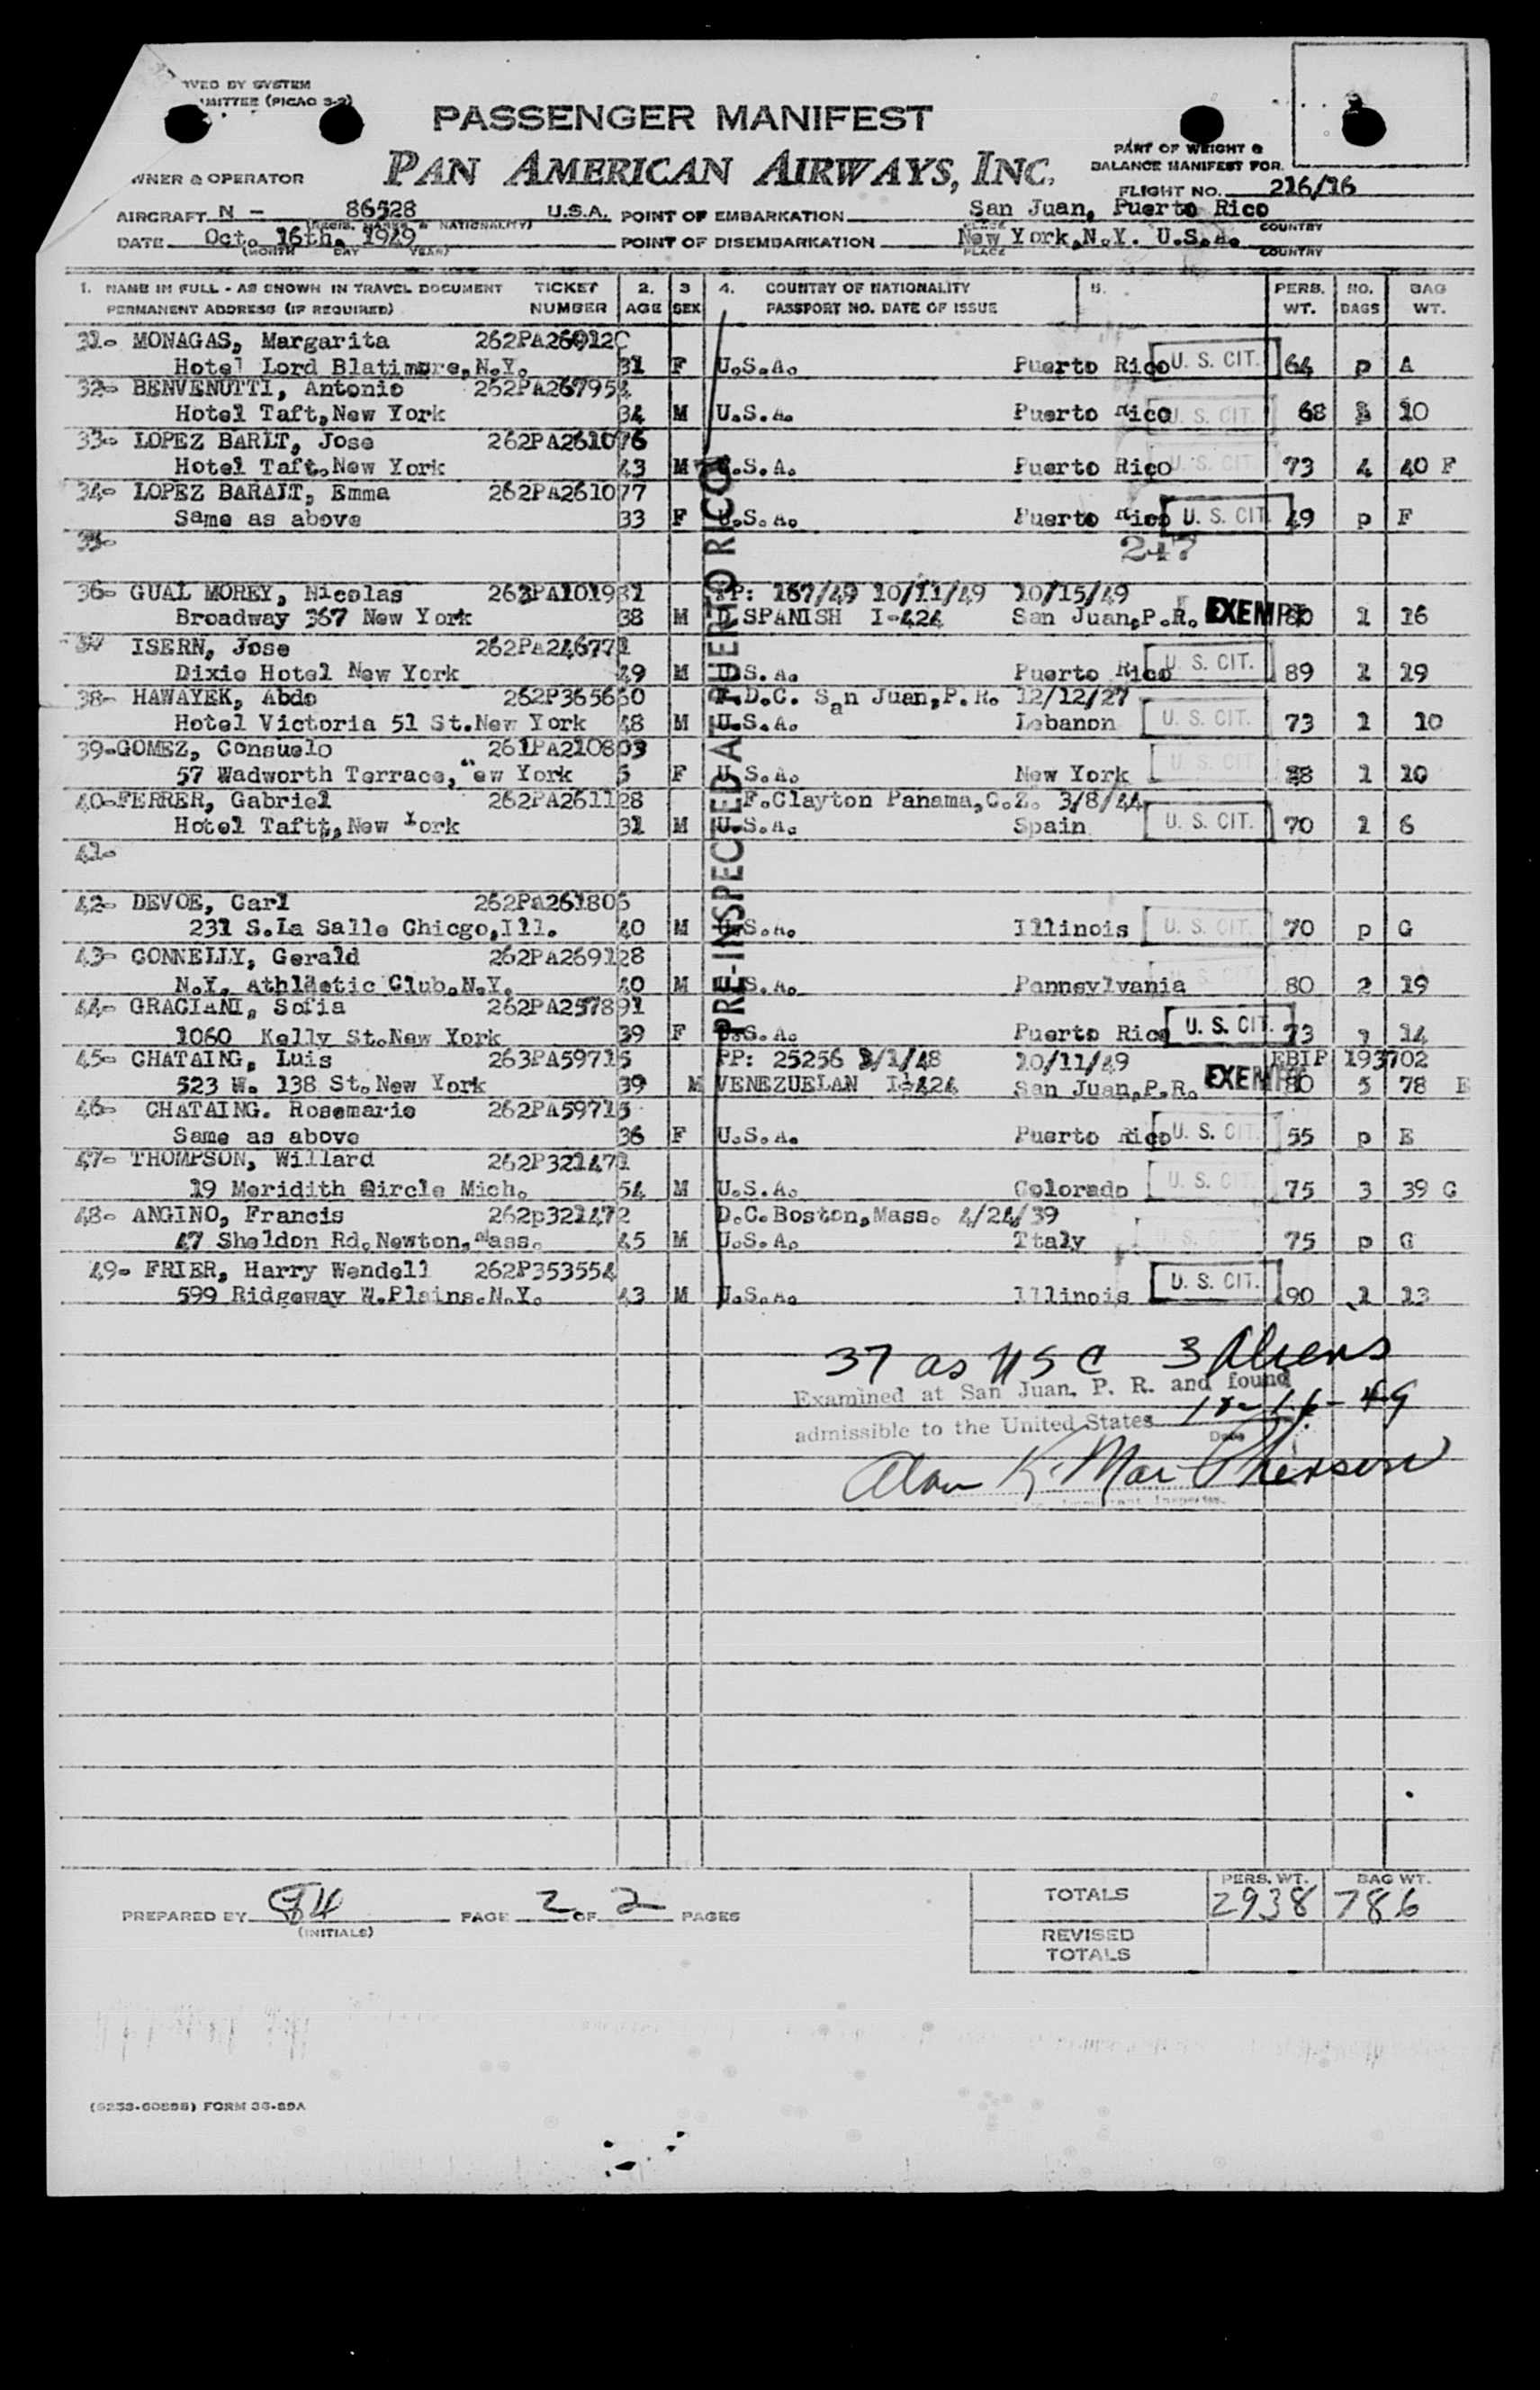 VED BY SYSTEM
MITTEE (PICAO 3-2)
PASSENGER MANIFEST
PAN AMERICAN AIRWAYS, INC.
PART OF WEIGHT &
BALANCE MANIFEST FOR
WNER & OPERATOR
FLIGHT NO. 216/16
AIRCRAFT N - 86528 U.S.A. POINT OF EMBARKATION San Juan, Puerto Rico
PLACE COUNTRY
DATE Oct. 16th, 1949 POINT OF DISEMBARKATION New York,N.Y. U.S.A.
(MONTH DAY YEAR) PLACE COUNTRY
1. NAME IN FULL - AS SHOWN IN TRAVEL DOCUMENT TICKET 2. 3 4. COUNTRY OF NATIONALITY 5. PERS. NO. BAG
PERMANENT ADDRESS (IF REQUIRED) NUMBER AGE SEX PASSPORT NO. DATE OF ISSUE WT. BAGS WT.
31- MONAGAS, Margarita 262PA26012C
Hotel Lord Blatimore,N.Y. 31 F U.S.A. Puerto Rico U. S. CIT. 64 p A
32- BENVENUTTI, Antonio 262PA267954
Hotel Taft,New York 34 M U.S.A. Puerto Rico U. S. CIT. 68 10
33- LOPEZ BARLT, Jose 262PA261076
Hotel Taft,New York 43 M U.S.A. Puerto Rico U. S. CIT 73 4 40 F
34- LOPEZ BARALT, Emma 262PA261077
Same as above 33 F U.S.A. Puerto Rico U. S. CIT. 49 p F
35- 247
36- GUAL MOREY, Nicolas 263PA101931 PP: 167/49 10/11/49 10/15/49
Broadway 367 New York 38 M SPANISH I-424 San Juan,P.R. EXEMPT 80 1 16
37 ISERN, Jose 262PA246771
Dixie Hotel New York 49 M U.S.A. Puerto Rico U. S. CIT. 89 1 19
38- HAWAYEK, Abdo 262P365650 D.C. San Juan,P.R. 12/12/27
Hotel Victoria 51 St.New York 48 M U.S.A. Lebanon U. S. CIT. 73 1 10
39-GOMEZ, Consuelo 261PA210803
57 Wadworth Terrace, New York 5 F U.S.A. New York U. S. CIT 1 10
40-FERRER, Gabriel 262PA261128 F.Clayton Panama,C.Z. 3/8/44
Hotel Taftt,New York 31 M U.S.A. Spain U. S. CIT. 70 1 6
41-
42- DEVOE, Carl 262PA261806
231 S.La Salle Chicgo,Ill. 40 M U.S.A. Illinois U. S. CIT. 70 p G
43- CONNELLY, Gerald 262PA269128
N.Y. Athlaetic Club,N.Y. 40 M U.S.A. Pennsylvania 80 2 19
44- GRACIANI, Sofia 262PA257891
1060 Kelly St.New York 39 F U.S.A. Puerto Rico U. S. CIT. 73 1 14
45- CHATAING, Luis 263PA59715 PP: 25256 3/1/48 10/11/49 EBIP 193702
523 W. 138 St.New York 39 M VENEZUELAN I-424 San Juan,P.R. EXEMPT 80 5 78 E
46- CHATAING. Rosemarie 262PA59715
Same as above 36 F U.S.A. Puerto Rico U. S. CIT. 55 p E
47- THOMPSON, Willard 262P321471
19 Meridith Circle Mich. 54 M U.S.A. Colorado U. S. CIT 75 3 39 G
48- ANGINO, Francis 262p321472 D.C.Boston,Mass. 4/24/39
47 Sheldon Rd.Newton,Mass. 45 M U.S.A. Italy U. S. CIT 75 p G
49- FRIER, Harry Wendell 262P353554
599 Ridgeway W.Plains.N.Y. 43 M U.S.A. Illinois U. S. CIT. 90 1 13
PRE-INSPECTED AT PUERTO RICO
37 as USC 3 Aliens
Examined at San Juan, P. R. and found
admissible to the United States 10-16-49
Date
Alan K. MacPherson
Immigrant Inspector.
TOTALS PERS. WT. 2938 BAG WT. 786
PREPARED BY (INITIALS) PAGE 2 OF 2 PAGES
REVISED
TOTALS
FORM 36-89A